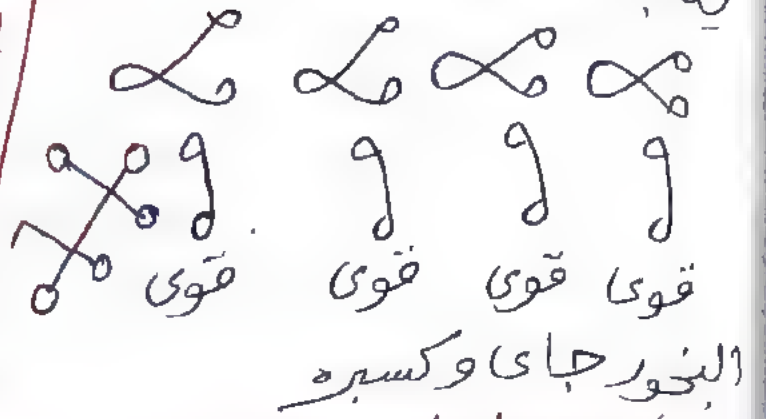 قوى قوى قوى قوى
البخور جاى وكسبره